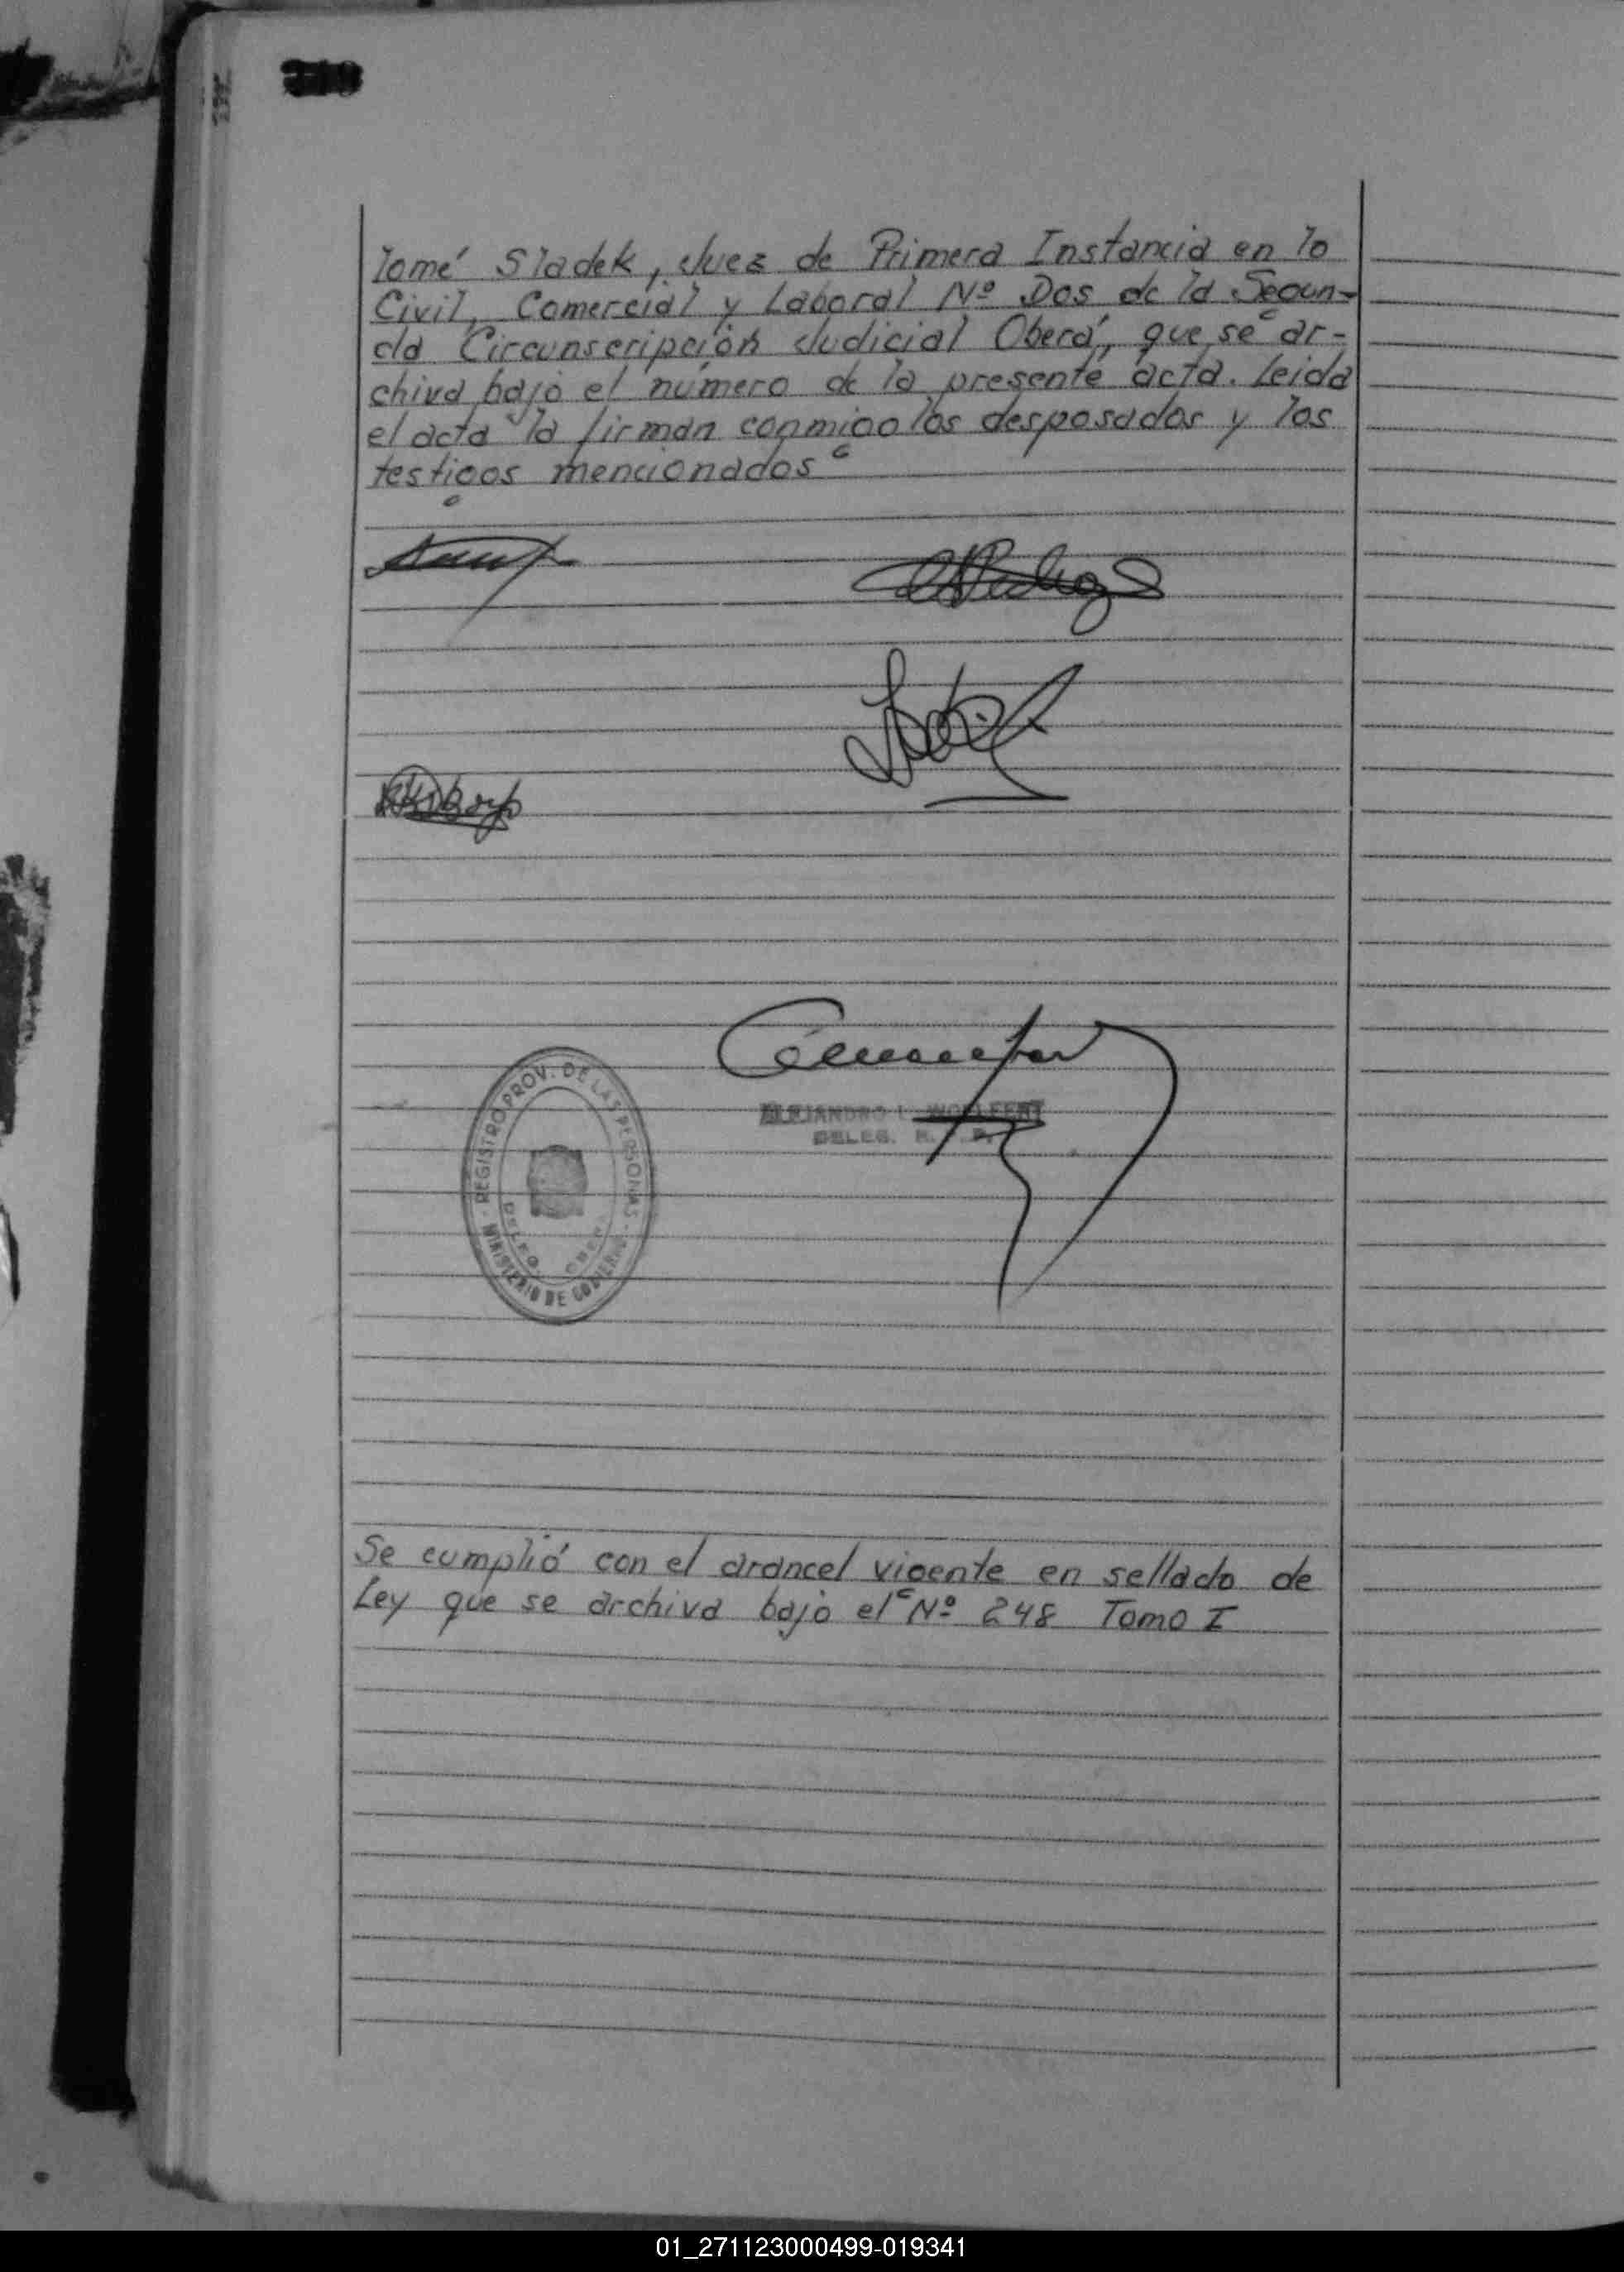 lomé Sladek, Juez de Primera Instancia en lo
Civil, Comercial y Laboral Nº Dos de la Segun-
da Circunscripción Judicial Oberá, que se ar-
chiva bajo el número de la presente acta. Leida
el acta la firman conmigo los desposados y los
testigos mencionados
ALEJANDRO WOLFFERT
DELEG. R. P.
REGISTRO PROV. DE LAS PERSONAS
MINISTERIO DE GOBIERNO
DELEG.
Se cumplió con el arancel vigente en sellado de
Ley que se archiva bajo el Nº 248 Tomo I
01_271123000499-019341